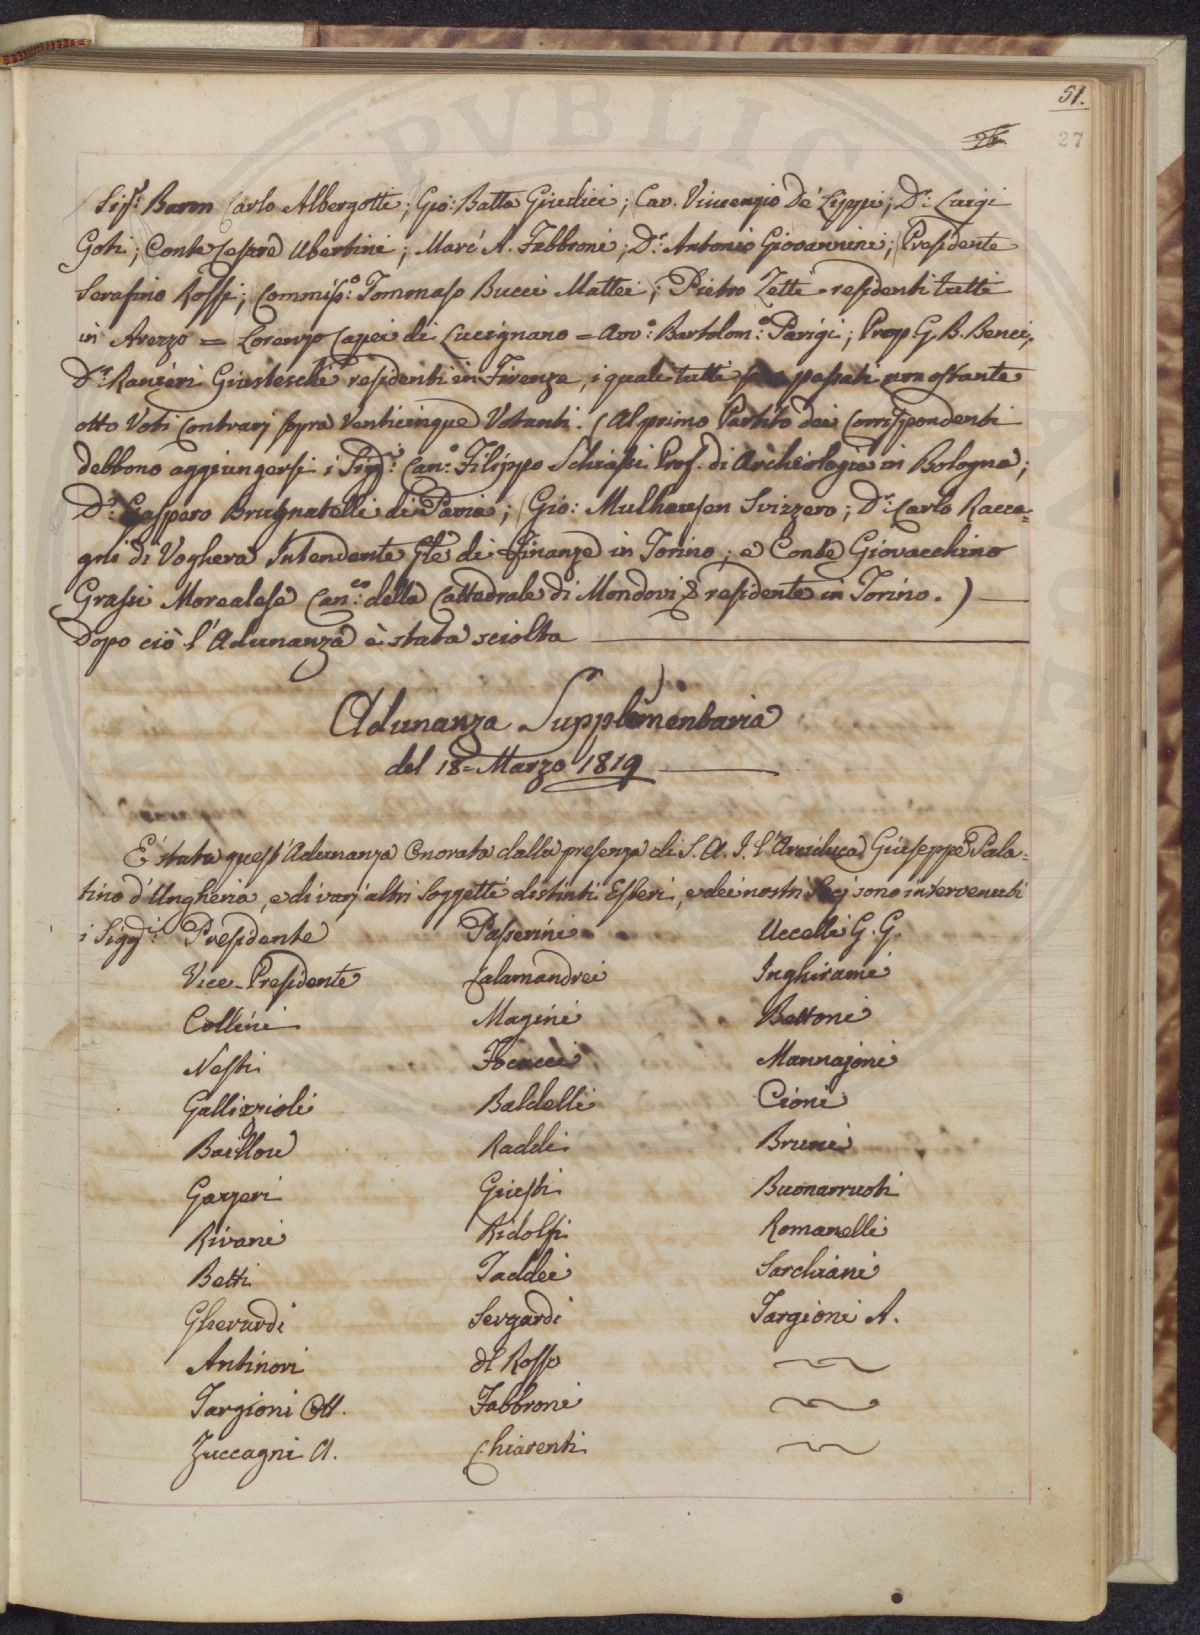 51.
27
Sig.ri Baron Carlo Albergotti; Gio: Batta Giudici; Cav. Vincenzio De' Ligpi; D.r Luigi
Goti; Conte Cesare Ubertini; Mari A. Fabbroni; D.r Antonio Giovannini; Presidente
Serafino Rossi; Commiss.o Tommaso Bucci Mattei; Pietro Zetti - residenti tutti
in Arezzo = Lorenzo Capei di Lucignano = Avv.o Bartolom.o Parigi; Prop G. B. Benci,
D.r Ranieri Giusteschi residenti in Firenze, i quali tutti passati non ostante
otto Voti Contrarj sopra Venticinque Votanti. (Al primo Partito dei Corrispondenti
debbono aggiungersi i Sigg.ri Can.o Filippo Schiassi Prof. di Archeologia in Bologna;
D.r Gaspero Brugnatelli di Pavia; Gio: Mulhausen Svizzero; D.r Carlo Racca=
gni di Voghera Intendente Gle di Finanze in Torino; e Conte Giovacchino
Grassi Morealese Can.co della Cattedrale di Mondovi & residente in Torino.)
Dopo ciò l'Adunanza è stata sciolta
Adunanza Supplementaria
del 18 - Marzo 1819
E' stata quest'Adunanza Onorata dalla presenza di S. A. I. l'Arciduca Giuseppe Pala=
tino d'Ungheria, e di varj altri Soggetti distinti Esteri, e dei nostri Socj sono intervenuti
i Sigg.ri Presidente Passerini Uccelli G. G.
Vice-Presidente Calamandrei Inghirami
Collini Magini Bettoni
Nesti Focacci Mannajoni
Gallizzioli Baldelli Cioni
Baillou Raddi Bruni
Gazzeri Giusti Buonarruoti
Rivani Ridolfi Romanelli
Betti Taddei Sarchiani
Gherardi Sergardi Targioni A.
Antinori del Rosso
Targioni Ott. Fabbroni
Zuccagni A. Chiarenti